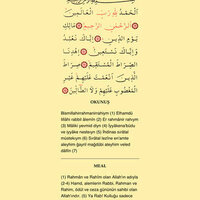 اَلْحَمْدُ لِلّٰهِ رَبِّ الْعَالَمِينَ
اَلرَّحْمٰنِ الرَّحِيمِ مَالِكِ
يَوْمِ الدِّينِ اِيَّاكَ نَعْبُدُ
وَاِيَّاكَ نَسْتَعِينُ اِهْدِنَا
الصِّرَاطَ الْمُسْتَقِيمَ صِرَاطَ
الَّذِينَ اَنْعَمْتَ عَلَيْهِمْ غَيْرِ
الْمَغْضُوبِ عَلَيْهِمْ وَلَا الضَّالِّينَ
OKUNUŞ
Bismillahirrahmanirrahiym (1) Elhamdü
lillâhi rabbil âlemîn (2) Er rahmâni rahıym
(3) Mâliki yevmid dîyn (4) İyyâkena'büdü
ve iyyâke nesteıyn (5) İhdinas sırâtal
müstekıym (6) Sırâtal lezîne en'amte
aleyhim ğayril mağdûbi aleyhim veled
dâllîn (7)
MEAL
(1) Rahmân ve Rahîm olan Allah'ın adıyla
(2-4) Hamd, alemlerin Rabbi, Rahman ve
Rahim, ödül ve ceza gününün sahibi olan
Allah'ındır. (5) Ya Rab! Kulluğu sadece